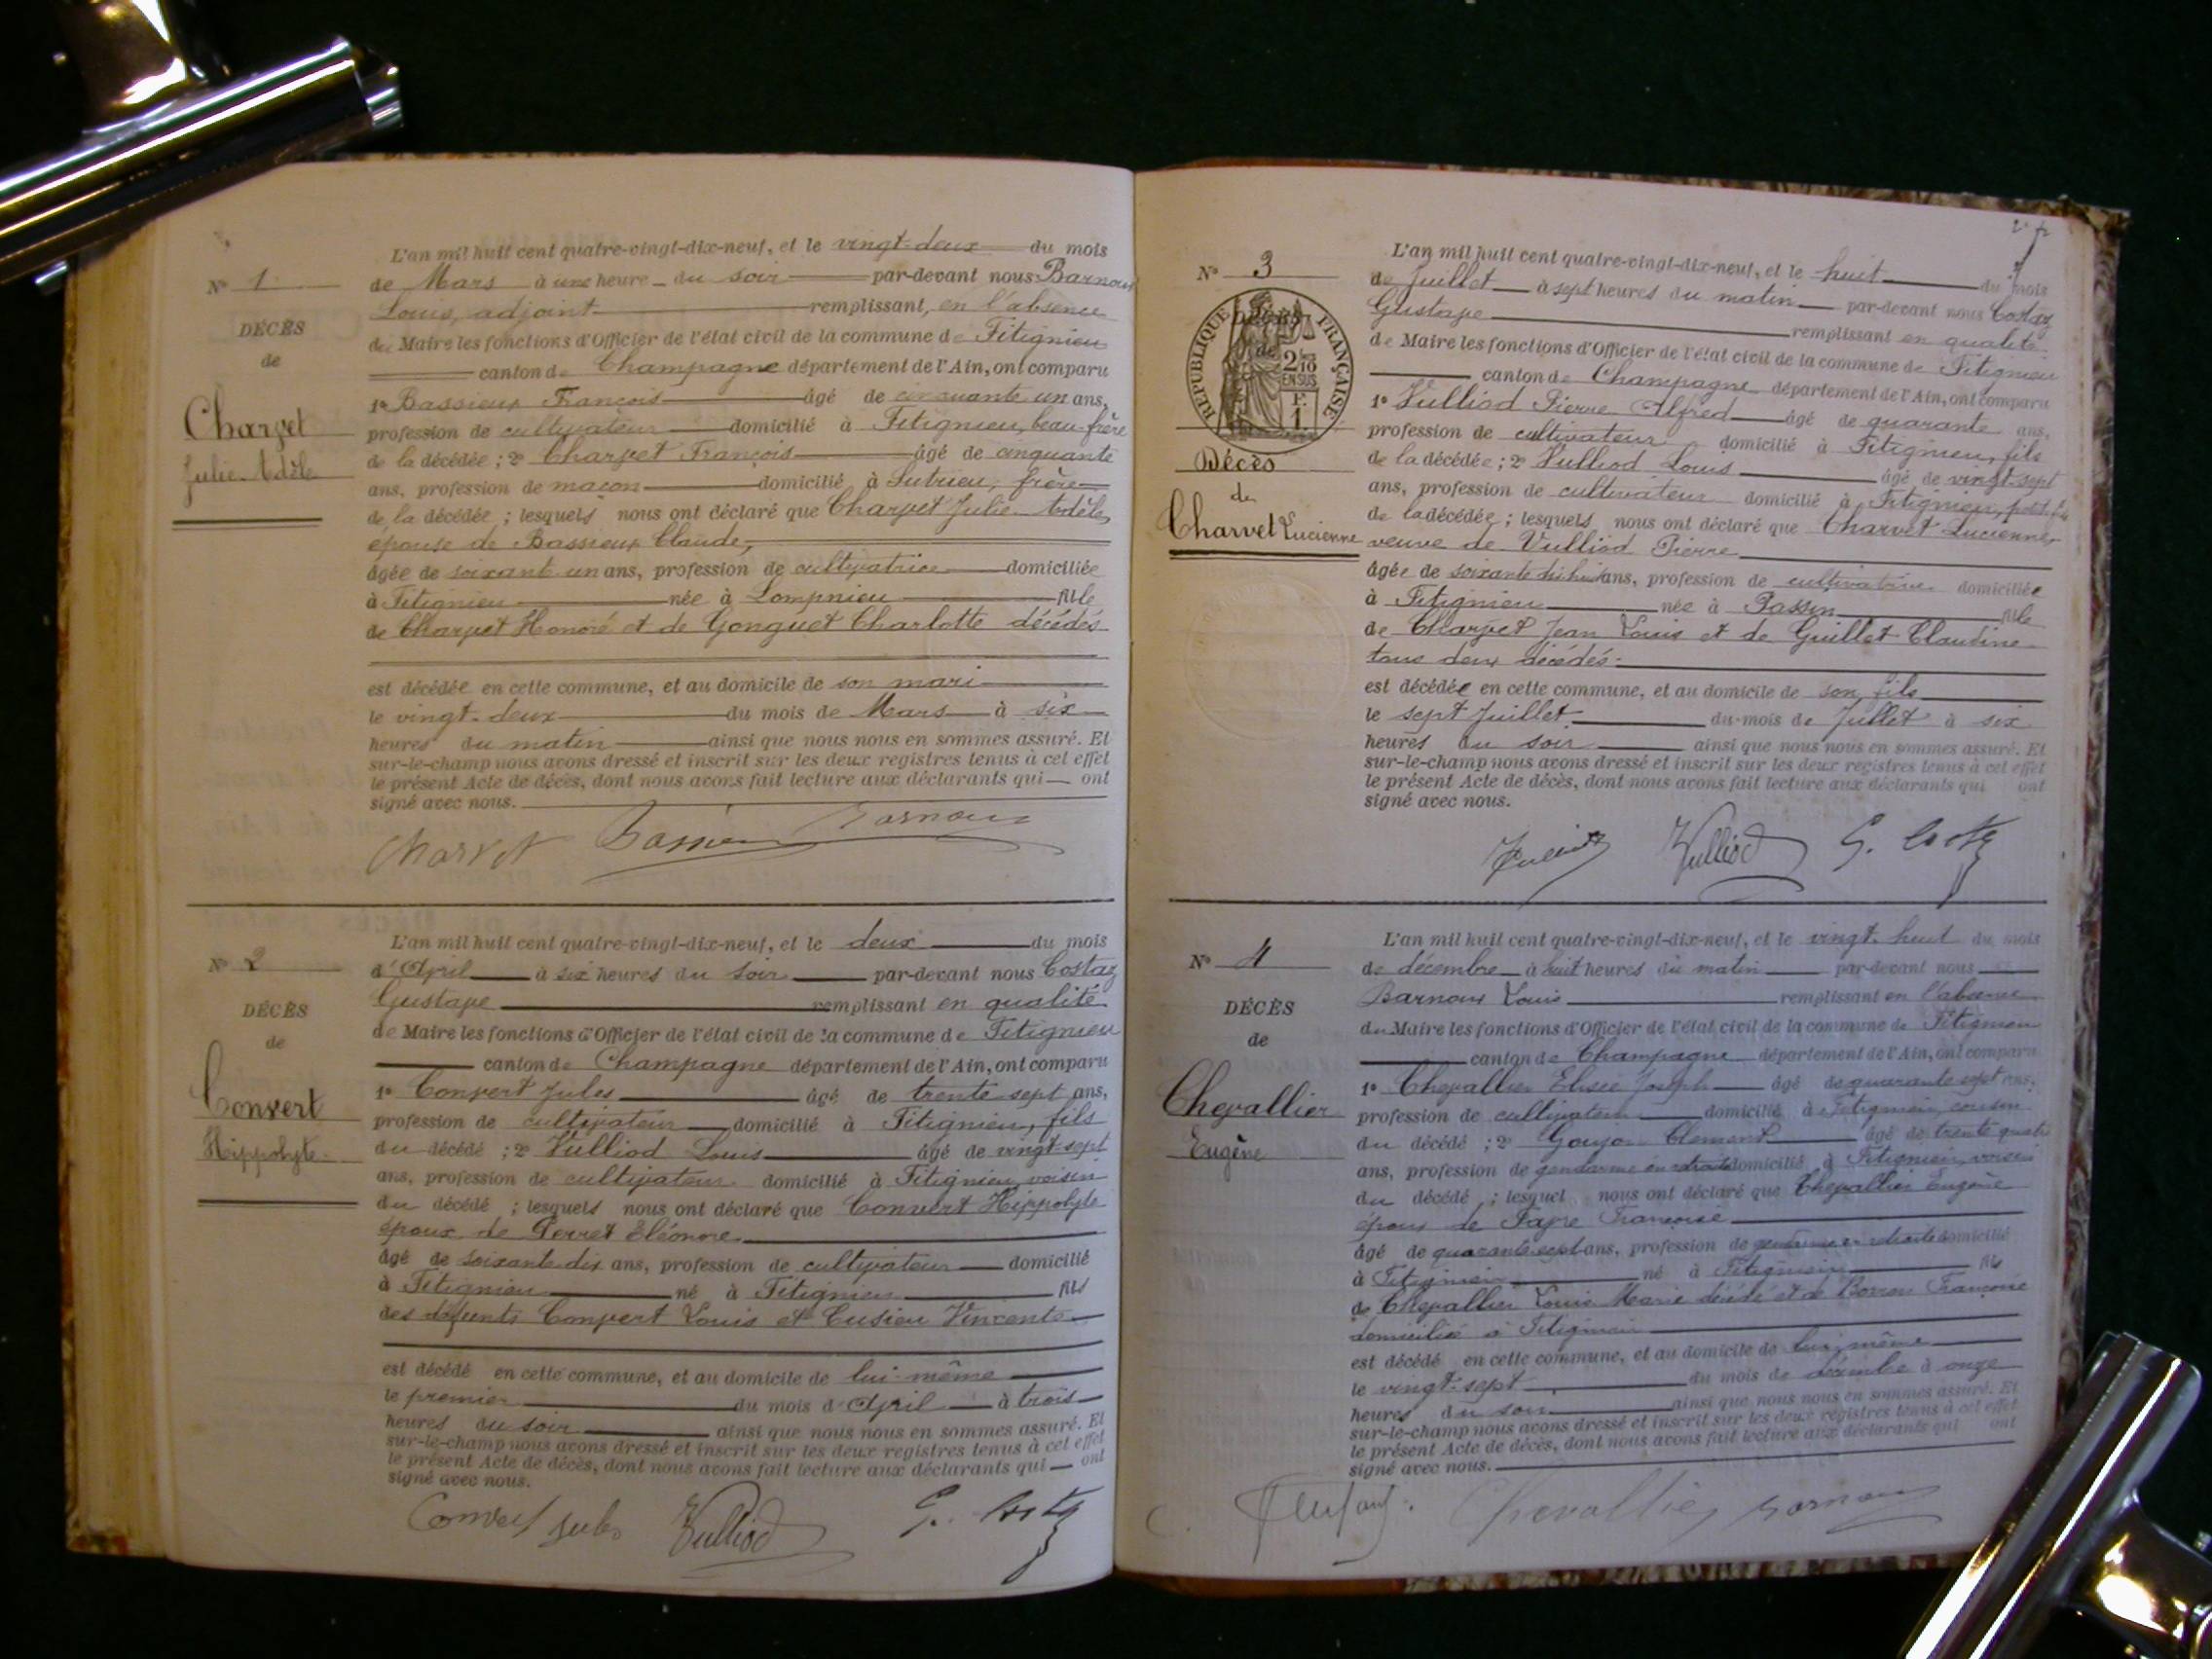 N° 1
DÉCÈS
de
Charvet
Julie Adèle
L'an mil huit cent quatre-vingt-dix-neuf, et le vingt-deux du mois
de Mars à une heure du soir par-devant nous Barnoux
Louis, adjoint remplissant, en l'absence
du Maire les fonctions d'Officier de l'état civil de la commune de Fitignieu
canton de Champagne département de l'Ain, ont comparu
1° Bassieux François âgé de cinquante un ans,
profession de cultivateur domicilié à Fitignieu, beau-frère
de la décédée ; 2° Charvet François âgé de cinquante
ans, profession de maçon domicilié à Sutrieu, frère
de la décédée ; lesquels nous ont déclaré que Charvet Julie Adèle,
épouse de Bassieux Claude,
âgée de soixante un ans, profession de cultivatrice domiciliée
à Fitignieu née à Lompnieu fille
de Charvet Honoré et de Gonguet Charlotte décédés
est décédée en cette commune, et au domicile de son mari
le vingt-deux du mois de Mars à six
heures du matin ainsi que nous nous en sommes assuré. Et
sur-le-champ nous avons dressé et inscrit sur les deux registres tenus à cet effet
le présent Acte de décès, dont nous avons fait lecture aux déclarants qui ont
signé avec nous.
Charvet Bassieu Barnoux
N° 2
DÉCÈS
de
Convert
Hippolyte
L'an mil huit cent quatre-vingt-dix-neuf, et le deux du mois
d'Avril à six heures du soir par-devant nous Costaz
Gustave remplissant en qualité
de Maire les fonctions d'Officier de l'état civil de la commune de Fitignieu
canton de Champagne département de l'Ain, ont comparu
1° Convert Jules âgé de trente sept ans,
profession de cultivateur domicilié à Fitignieu, fils
du décédé ; 2° Vulliod Louis âgé de vingt-sept
ans, profession de cultivateur domicilié à Fitignieu, voisin
du décédé ; lesquels nous ont déclaré que Convert Hippolyte
époux de Perret Eléonore
âgé de soixante dix ans, profession de cultivateur domicilié
à Fitignieu né à Fitignieu fils
des défunts Convert Louis et Cusieu Vincente
est décédé en cette commune, et au domicile de lui-même
le premier du mois d'Avril à trois
heures du soir ainsi que nous nous en sommes assuré. Et
sur-le-champ nous avons dressé et inscrit sur les deux registres tenus à cet effet
le présent Acte de décès, dont nous avons fait lecture aux déclarants qui ont
signé avec nous.
Convert Jules Vulliod G. Costaz
N° 3
RÉPUBLIQUE FRANÇAISE
DÉCÈS
de
2/10 EN SUS
F. 1.
Décès
de
Charvet Lucienne
L'an mil huit cent quatre-vingt-dix-neuf, et le huit du mois
de Juillet à sept heures du matin par-devant nous Costaz
Gustave remplissant en qualité
de Maire les fonctions d'Officier de l'état civil de la commune de Fitignieu
canton de Champagne département de l'Ain, ont comparu
1° Vulliod Pierre Alfred âgé de quarante ans,
profession de cultivateur domicilié à Fitignieu, fils
de la décédée ; 2° Vulliod Louis âgé de vingt-sept
ans, profession de cultivateur domicilié à Fitignieu, petit-fils
de la décédée ; lesquels nous ont déclaré que Charvet Lucienne,
veuve de Vulliod Pierre
âgée de soixante dix huit ans, profession de cultivatrice domiciliée
à Fitignieu née à Passin fille
de Charvet Jean Louis et de Guillet Claudine
tous deux décédés.
est décédée en cette commune, et au domicile de son fils
le sept Juillet du mois de Juillet à six
heures du soir ainsi que nous nous en sommes assuré. Et
sur-le-champ nous avons dressé et inscrit sur les deux registres tenus à cet effet
le présent Acte de décès, dont nous avons fait lecture aux déclarants qui ont
signé avec nous.
Vulliod G. Costaz
N° 4
DÉCÈS
de
Chevallier
Eugène
L'an mil huit cent quatre-vingt-dix-neuf, et le vingt-huit du mois
de décembre à huit heures du matin par-devant nous
Barnoux Louis remplissant en l'absence
du Maire les fonctions d'Officier de l'état civil de la commune de Fitignieu
canton de Champagne département de l'Ain, ont comparu
1° Chevallier Elisée Joseph âgé de quarante sept ans,
profession de cultivateur domicilié à Fitignieu, cousin
du décédé ; 2° Goujon Clément âgé de trente quatre
ans, profession de gendarme en retraite domicilié à Fitignieu, voisin
du décédé ; lesquel nous ont déclaré que Chevallier Eugène
époux de Favre Françoise
âgé de quarante sept ans, profession de gendarme en retraite domicilié
à Fitignieu né à Fitignieu fils
de Chevallier Louis Marie décédé et de Françoise
domiciliée à Fitignieu
est décédé en cette commune, et au domicile de lui-même
le vingt-sept du mois de décembre à onze
heures du soir ainsi que nous nous en sommes assuré. Et
sur-le-champ nous avons dressé et inscrit sur les deux registres tenus à cet effet
le présent Acte de décès, dont nous avons fait lecture aux déclarants qui ont
signé avec nous.
Chevallier Barnoux